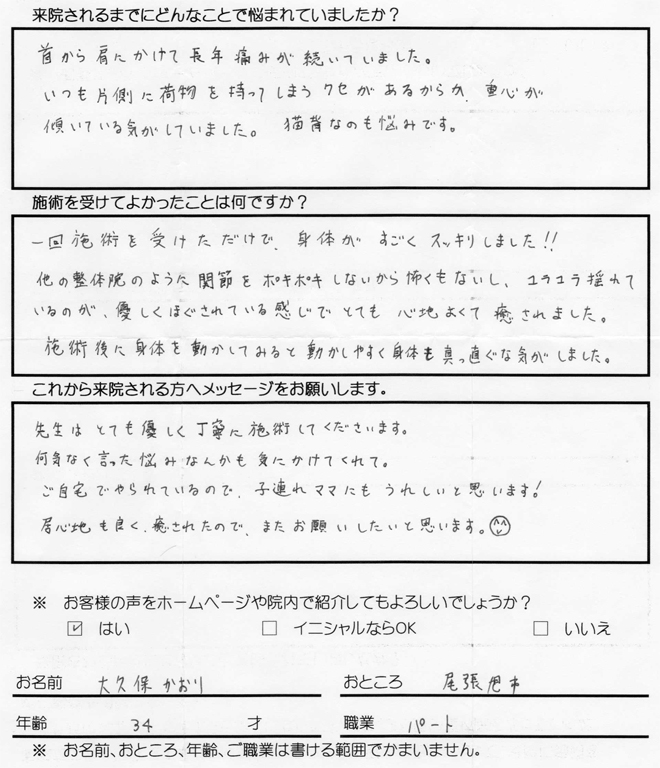 来院されるまでにどんなことで悩まれていましたか？
首から肩にかけて長年痛みが続いていました。
いつも片側に荷物を持ってしまうクセがあるからか、重心が
傾いている気がしていました。 猫背なのも悩みです。
施術を受けてよかったことは何ですか？
一回施術を受けただけで、身体がすごくスッキリしました!!
他の整体院のように関節をポキポキしないから怖くもないし、ユラユラ揺れて
いるのが、優しくほぐされている感じでとても心地よくて癒されました。
施術後に身体を動かしてみると動かしやすく身体も真っ直ぐな気がしました。
これから来院される方へメッセージをお願いします。
先生はとても優しく丁寧に施術してくださいます。
何気なく言った悩みなんかも気にかけてくれて。
ご自宅でやられているので、子連れママにもうれしいと思います!
居心地も良く、癒されたので、またお願いしたいと思います。
※ お客様の声をホームページや院内で紹介してもよろしいでしょうか？
☑ はい □ イニシャルならOK □ いいえ
お名前 大久保かおり おところ 尾張旭市
年齢 34 才 職業 パート
※ お名前、おところ、年齢、ご職業は書ける範囲でかまいません。